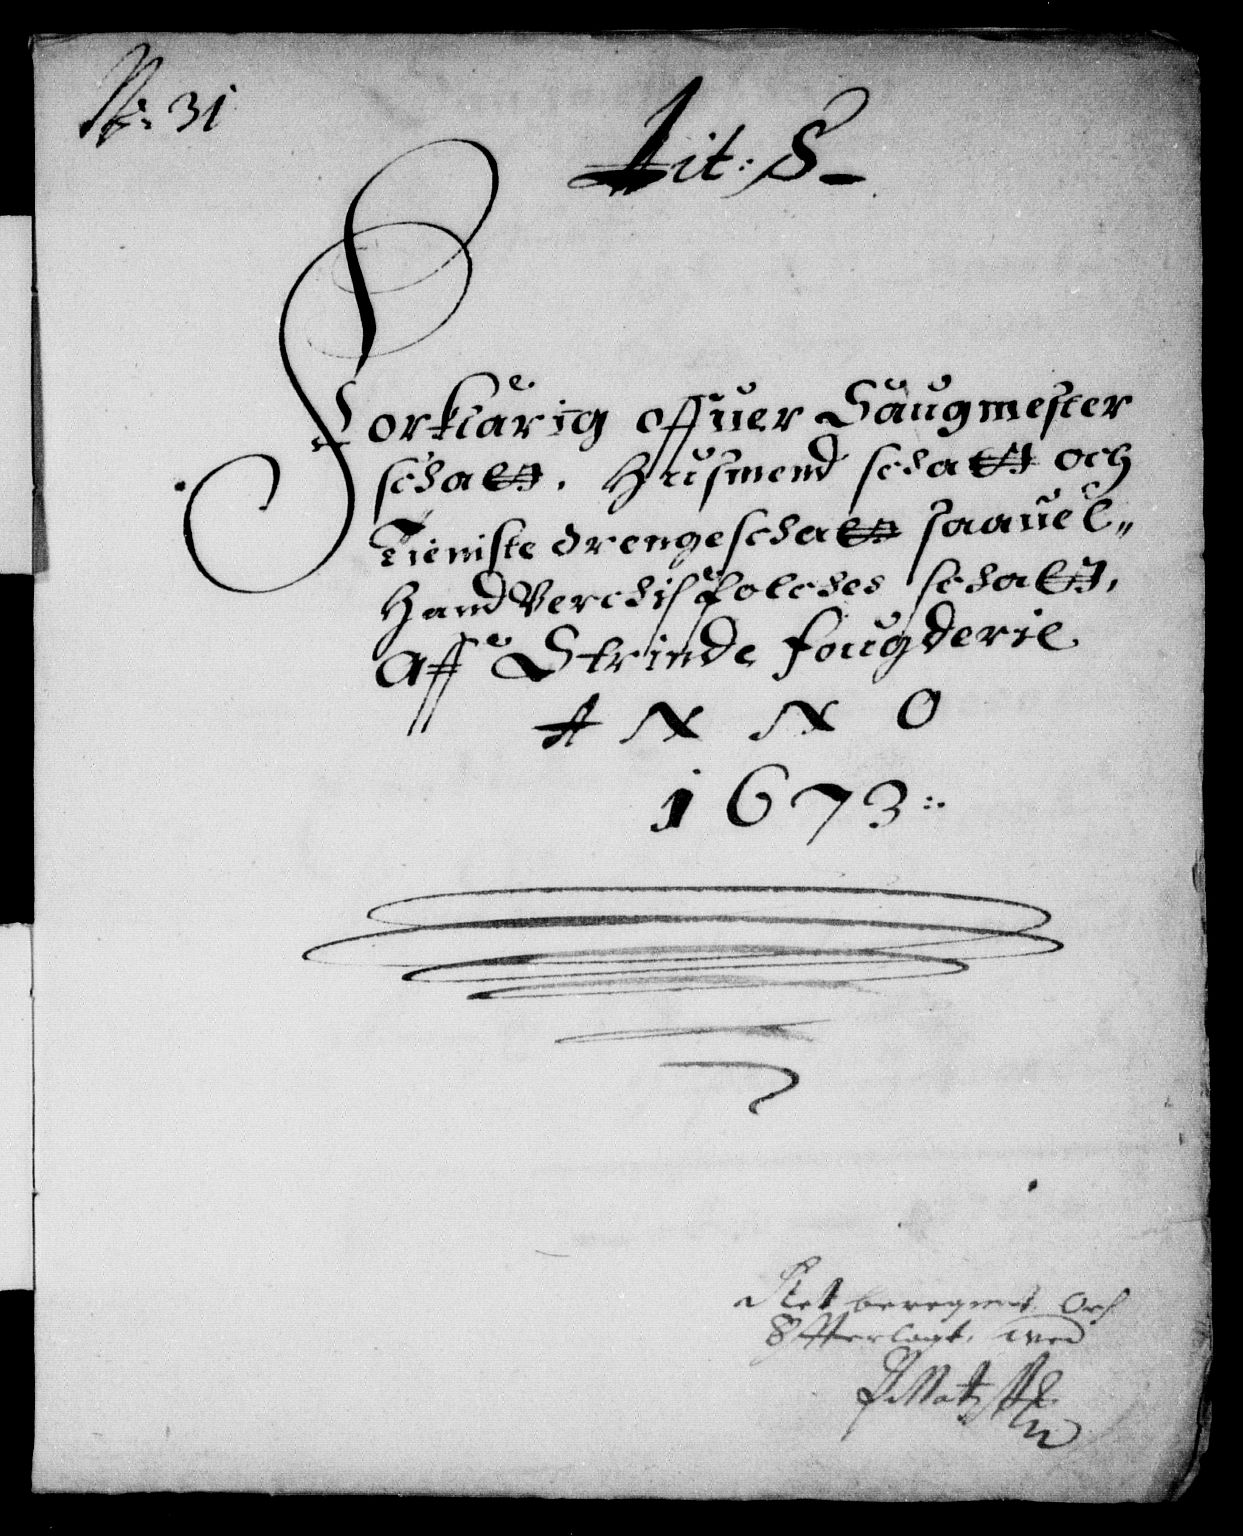 No: 31
Lit: S
Forklarig offuer Saugmester
schatt. Husmend schatt och
Tieniste drengeschatt saauel„
Handverchis folches schatt,
Aff Strinde fougderie
ANNO
1673
Ret beregnet Och
Efterlagt. Med